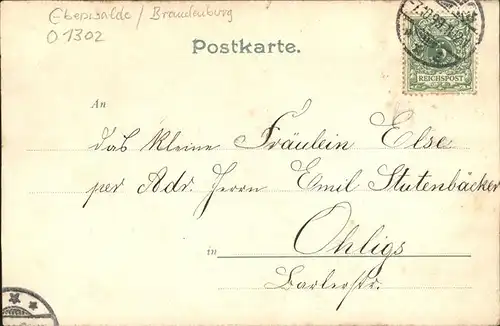 Eberswalde / Brandenburg
O 1302
Postkarte.
5
REICHSPOST
An
das kleine Fräulein Else
per Adr. Herrn Emil Stutenbäcker
in Ohligs
Barlerstr.